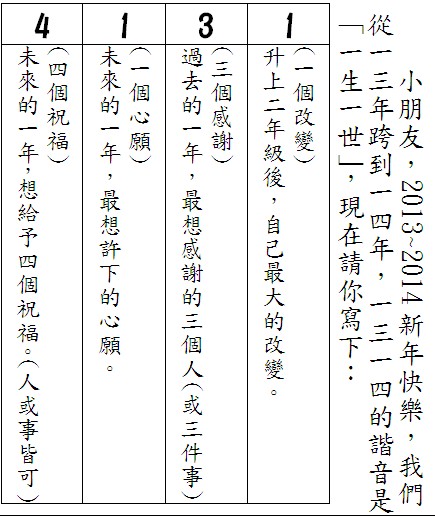 小朋友，2013~2014 新年快樂，我們
從一三年跨到一四年，一三一四的諧音是
「一生一世」，現在請你寫下：
1
(一個改變)
升上二年級後，自己最大的改變。
3
(三個感謝)
過去的一年，最想感謝的三個人(或三件事)
1
(一個心願)
未來的一年，最想許下的心願。
4
(四個祝福)
未來的一年，想給予四個祝福。(人或事皆可)